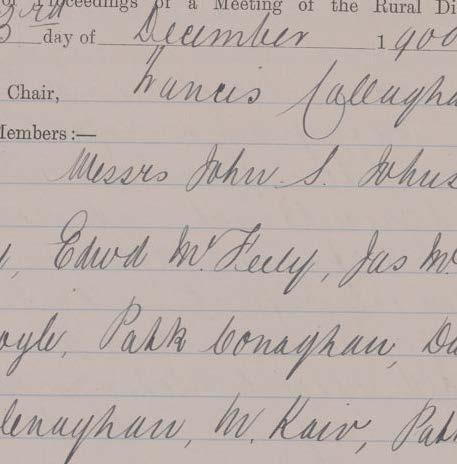 of Proceedings of a Meeting of the Rural Di
3rd day of December 1900
Chair, Francis Callagha
Members:—
Messrs John S. Johns
Edwd McFeely, Jas Mc
oyle, Patk Conaghan, Da
lenaghan, M. Kair, Patk